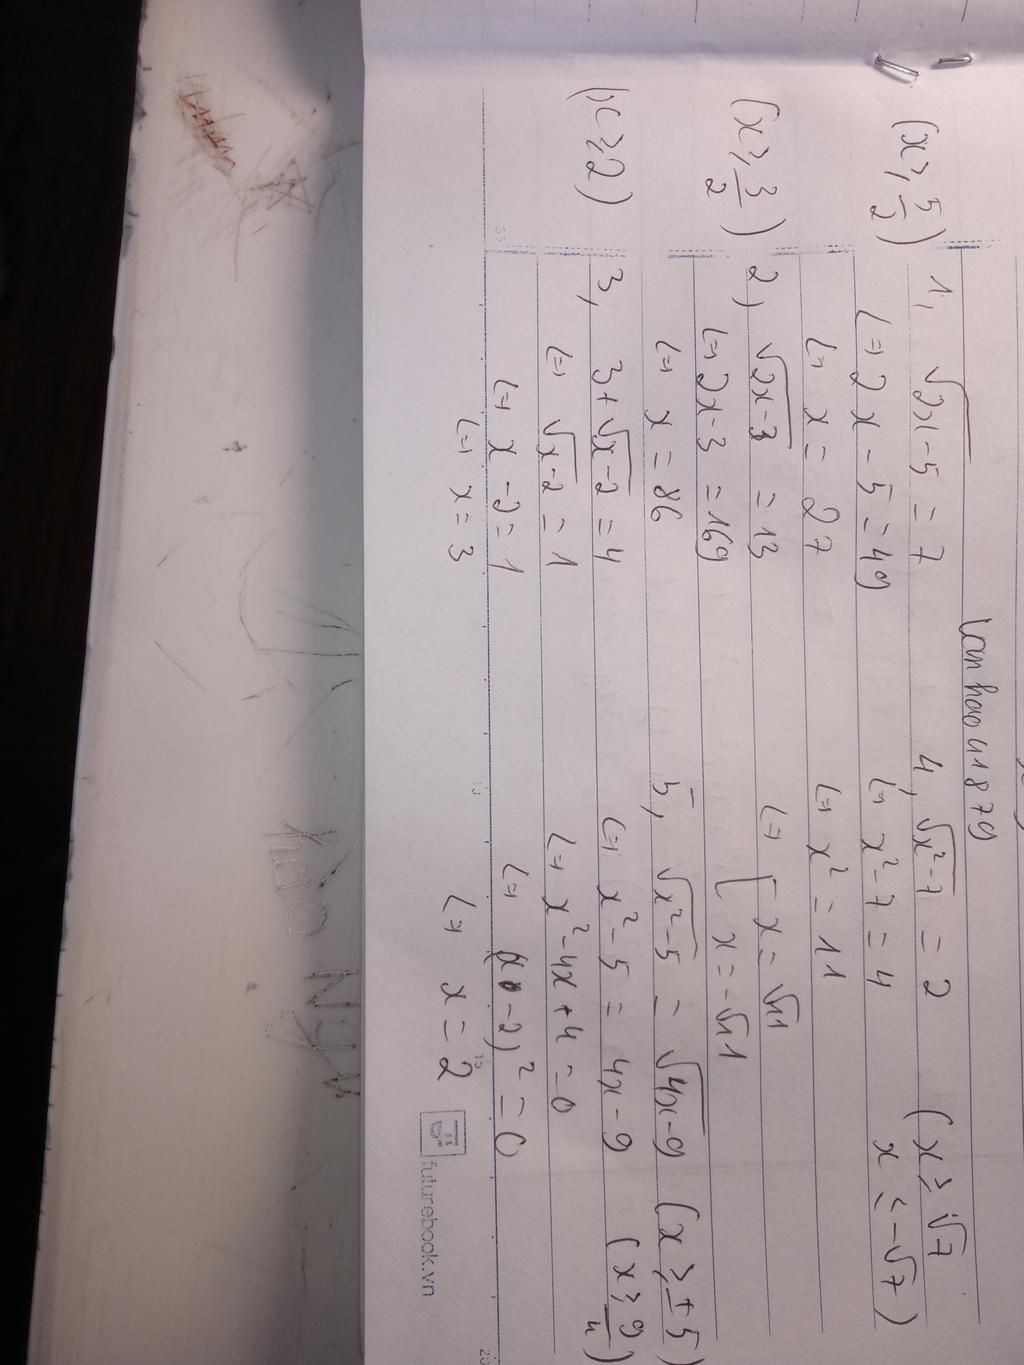 lamhaou1879
(x ≥ 5/2) 1, √2x-5 = 7
(=) 2x - 5 = 49
(=) x = 27
(x ≥ 3/2) 2, √2x-3 = 13
(=) 2x-3 = 169
(=) x = 86
(x ≥ 2) 3, 3+√x-2 = 4
(=) √x-2 = 1
(=) x-2 = 1
(=) x = 3
4, √x²-7 = 2 (x ≥ √7
x ≤ -√7)
(=) x²-7 = 4
(=) x² = 11
(=) [ x = √11
x = -√11
5, √x²-5 = √4x-9 (x ≥ ±5)
(=) x²-5 = 4x-9 (x ≥ 9/4)
(=) x²-4x+4 = 0
(=) (x-2)² = 0
(=) x = 2
15
20
futurebook.vn